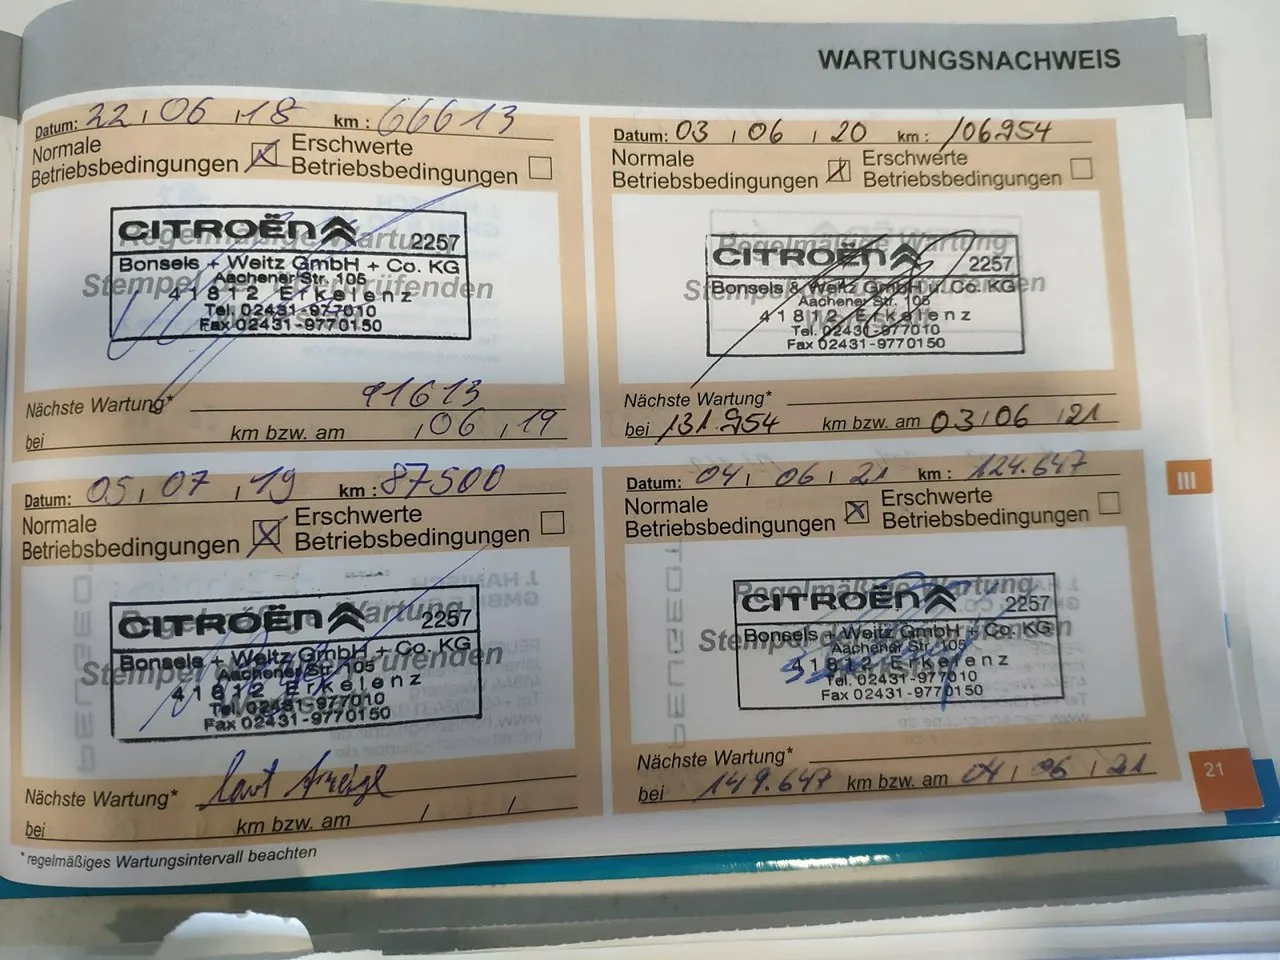 WARTUNGSNACHWEIS
Datum: 22 , 06 , 18 km : 66613
Normale Betriebsbedingungen Erschwerte Betriebsbedingungen
Regelmäßige Wartung
Stempel prüfenden
CITROËN 2257
Bonsels + Weitz GmbH + Co. KG
Aachener Str. 105
41812 Erkelenz
Tel. 02431-977010
Fax 02431-9770150
Nächste Wartung* 91613
bei km bzw. am , 06 , 19
Datum: 05 , 07 , 19 km : 87500
Normale Betriebsbedingungen Erschwerte Betriebsbedingungen
Wartung
Stempel prüfenden
CITROËN 2257
Bonsels + Weitz GmbH + Co. KG
Aachener Str. 105
41812 Erkelenz
Tel. 02431-977010
Fax 02431-9770150
Nächste Wartung* laut Anzeige
bei km bzw. am , ,
*regelmäßiges Wartungsintervall beachten
Datum: 03 , 06 , 20 km : 106954
Normale Betriebsbedingungen Erschwerte Betriebsbedingungen
Regelmäßige Wartung
Stempel
CITROËN 2257
Bonsels & Weitz GmbH u. Co. KG
Aachener Str. 105
41812 Erkelenz
Tel. 02431-977010
Fax 02431-9770150
Nächste Wartung*
bei 131.954 km bzw. am 03 , 06 , 21
Datum: 04 , 06 , 21 km : 124.647
Normale Betriebsbedingungen Erschwerte Betriebsbedingungen
Regelmäßige Wartung
Stempel
CITROËN 2257
Bonsels + Weitz GmbH + Co. KG
41812 Erkelenz
Tel. 02431-977010
Fax 02431-9770150
Nächste Wartung*
bei 149.647 km bzw. am 04 , 06 , 21
III
21